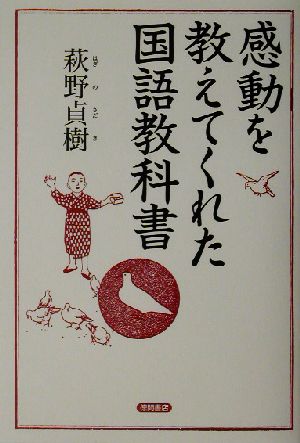 感動を
教えてくれた
国語教科書
萩野貞樹
はぎ の さだ き
徳間書店